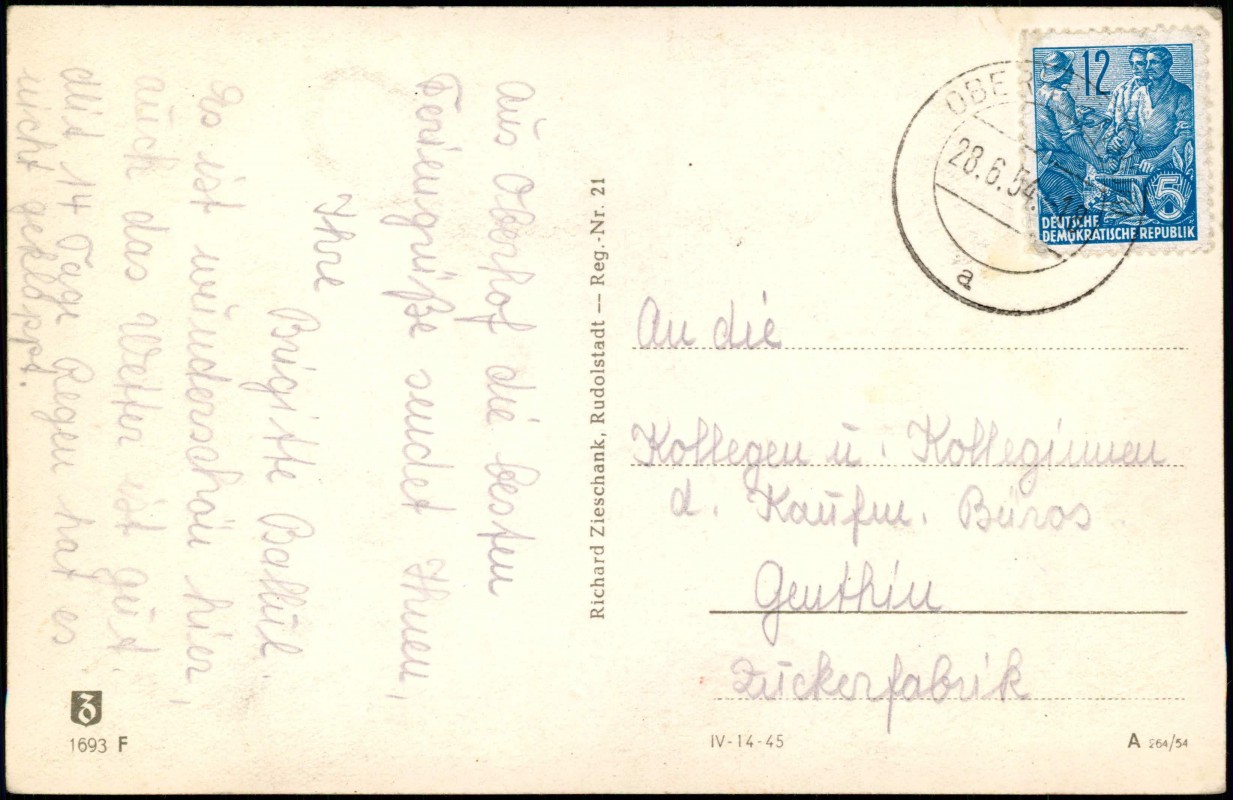 Aus Oberhof die besten
Feriengrüße sendet Ihnen,
Ihre
Brigitte
Es ist wunderschön hier,
auch das Wetter ist gut.
Mit 14 Tage Regen hat es
nicht geklappt.
Richard Zieschank, Rudolstadt — Reg.-Nr. 21
1693 F
12
5
DEUTSCHE
DEMOKRATISCHE REPUBLIK
OBER
28.6.54.
a
An die
Kollegen u. Kolleginnen
d. Kaufm. Büros
Genthin
Zuckerfabrik
IV-14-45
A 264/54